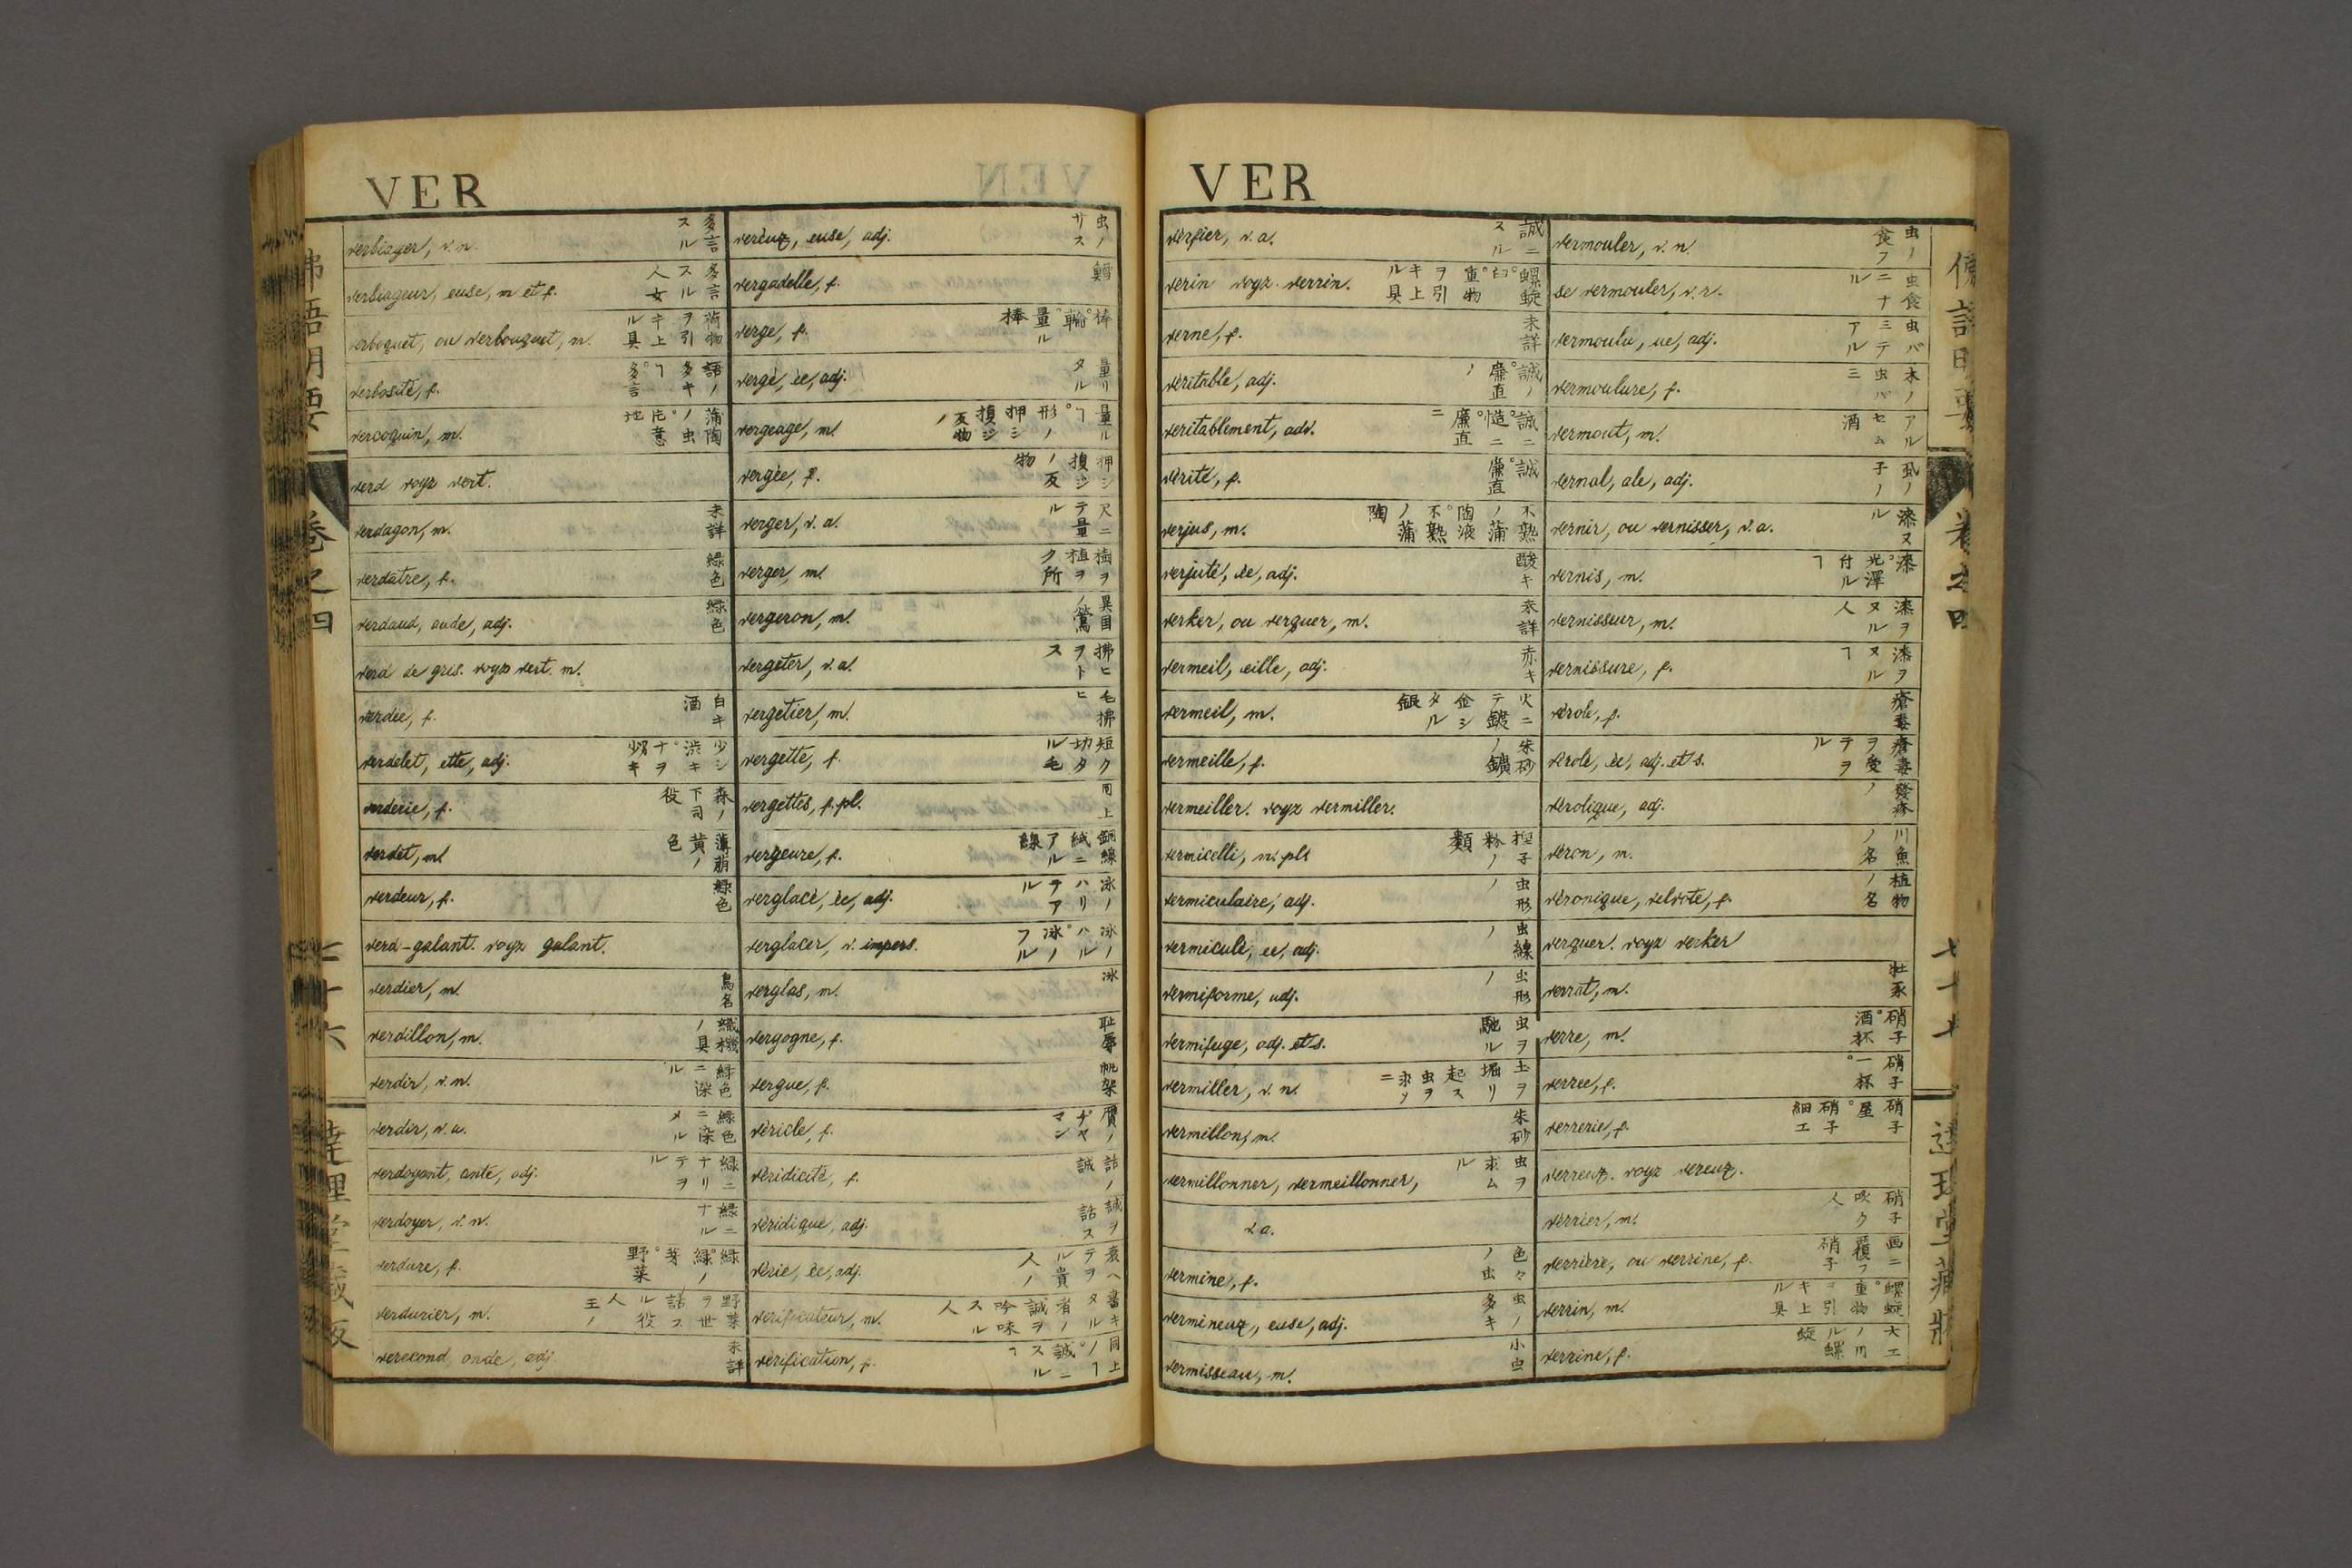 VER
verbiager, v. n. 多言スル
verbiageur, euse, m et f. 多言スル人 女
verboquet, ou verbouquet, m.
verbosité, f. 語ノ多キヿ。多言
vercoquin, m.
verd voyz vert.
verdagon, m. 未詳
verdâtre, f. 緑色
verdaud, aude, adj. 緑色
verd de gris. voyz vert. m.
verdée, f. 白キ酒
verdelet, ette, adj.
verderie, f. 森ノ下司役
verdet, m. 薄萠黄ノ色
verdeur, f. 緑色
verd-galant. voyz galant.
verdier, m. 鳥名
verdillon, m. 織機ノ具
verdir, v. n. 緑色ニ深ル
verdir, v. a. 緑色ニ染メル
verdoyant, ante, adj. 緑ニナリテヲル
verdoyer, v. n. 緑ニナル
verdure, f. 緑。緑ノ芽。野菜
verdurier, m. 野菜ヲ世話スル役人
verecond, onde, adj. 未詳
vereux, euse, adj. 虫ノサス
vergadelle, f. 鱈
verge, f. 棒。輪。量ル棒
vergé, ée, adj. 量リタル
vergeage, m.
vergée, f.
verger, v. a. 尺ニテ量ル
verger, m. 樹ヲ植ヲク所
vergeron, m. 異国ノ鶯
vergeter, v. a. 拂ヒヲトス
vergetier, m. 毛拂ヒ
vergette, f. 短ク切タル毛
vergettes, f. pl. 同上
vergeure, f. 銅線。紙ニアル線
verglacé, ée, adj. 氷ノハリテアル
verglacer, v. impers. 氷ノハル。氷ノフル
verglas, m. 氷
vergogne, f. 耻辱
vergue, f. 帆架
véricle, f. 贋ノヂヤマン
véridicité, f. 話ノ誠
véridique, adj. 誠ヲ話ス
vérié, ée, adj.
vérificateur, m.
vérification, f. 同上ノヿ。誠ニスルヿ
佛語明要 巻之四 七十六 達理堂蔵版
VER
vérfier, v. a. 誠ニスル
vérin voyz. verrin. 螺旋臼。重物ヲ引上キル具
verne, f. 未詳
véritable, adj. 誠ノ。廉直ノ
véritablement, adv. 誠ニ。慥ニ。廉直ニ
vérité, f. 誠。廉直
verjus, m. 不熟蒲陶ノ液。不熟ノ蒲陶
verjuté, ée, adj. 酸キ
verker, ou verquer, m. 未詳
vermeil, eille, adj. 赤キ
vermeil, m. 火ニテ鍍金シタル銀
vermeille, f. 朱砂ノ鑛
vermeiller. voyz vermiller.
vermicelli, m. pl.
vermiculaire, adj. 虫形ノ
vermiculé, ée, adj. 虫線ノ
vermiforme, adj. 虫形ノ
vermifuge, adj. et s. 虫ヲ馳ル
vermiller, v. n. 土ヲ堀リ起ス虫ヲ求ソニ
vermillon, m. 朱砂
vermillonner, vermeillonner, 虫ヲ求ムル
v. a.
vermine, f. 色々ノ虫
vermineux, euse, adj. 虫ノ多キ
vermisseau, m. 小虫
vermouler, v. n. 虫ノ食フ
se vermouler, v. r. 虫食ニナル
vermoulu, ue, adj. 虫バミテアル
vermoulure, f. 木ノ虫バミ
vermout, m. アルセム酒
vernal, ale, adj.
vernir, ou vernisser, v. a. 漆ヌル
vernis, m. 漆。光澤付ルヿ
vernisseur, m. 漆ヲヌル人
vernissure, f. 漆ヲヌルヿ
vérole, f. 瘡毒
vérolé, ée, adj. et s. 瘡毒ヲ受テヲル
vérolique, adj.
véron, m. 川魚ノ名
véronique, velvote, f. 植物ノ名
verquer. voyz verker
verrat, m. 牡豕
verre, m. 硝子。酒杯
verrée, f. 硝子一杯。
verrerie, f. 硝子屋。硝子細工
verreux. voyz vereux.
verrier, m. 硝子吹ク人
verrière, ou verrine, f. 画ニ覆フ硝子
verrin, m. 螺旋。重物ヲ引上キル具
verrine, f. 大工ノ用ル螺旋
佛語明要 巻之四 七十七 達理堂蔵版